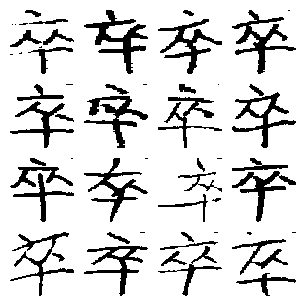 卒卒卒卒
卒卒卒卒
卒卒卒卒
卒卒卒卒